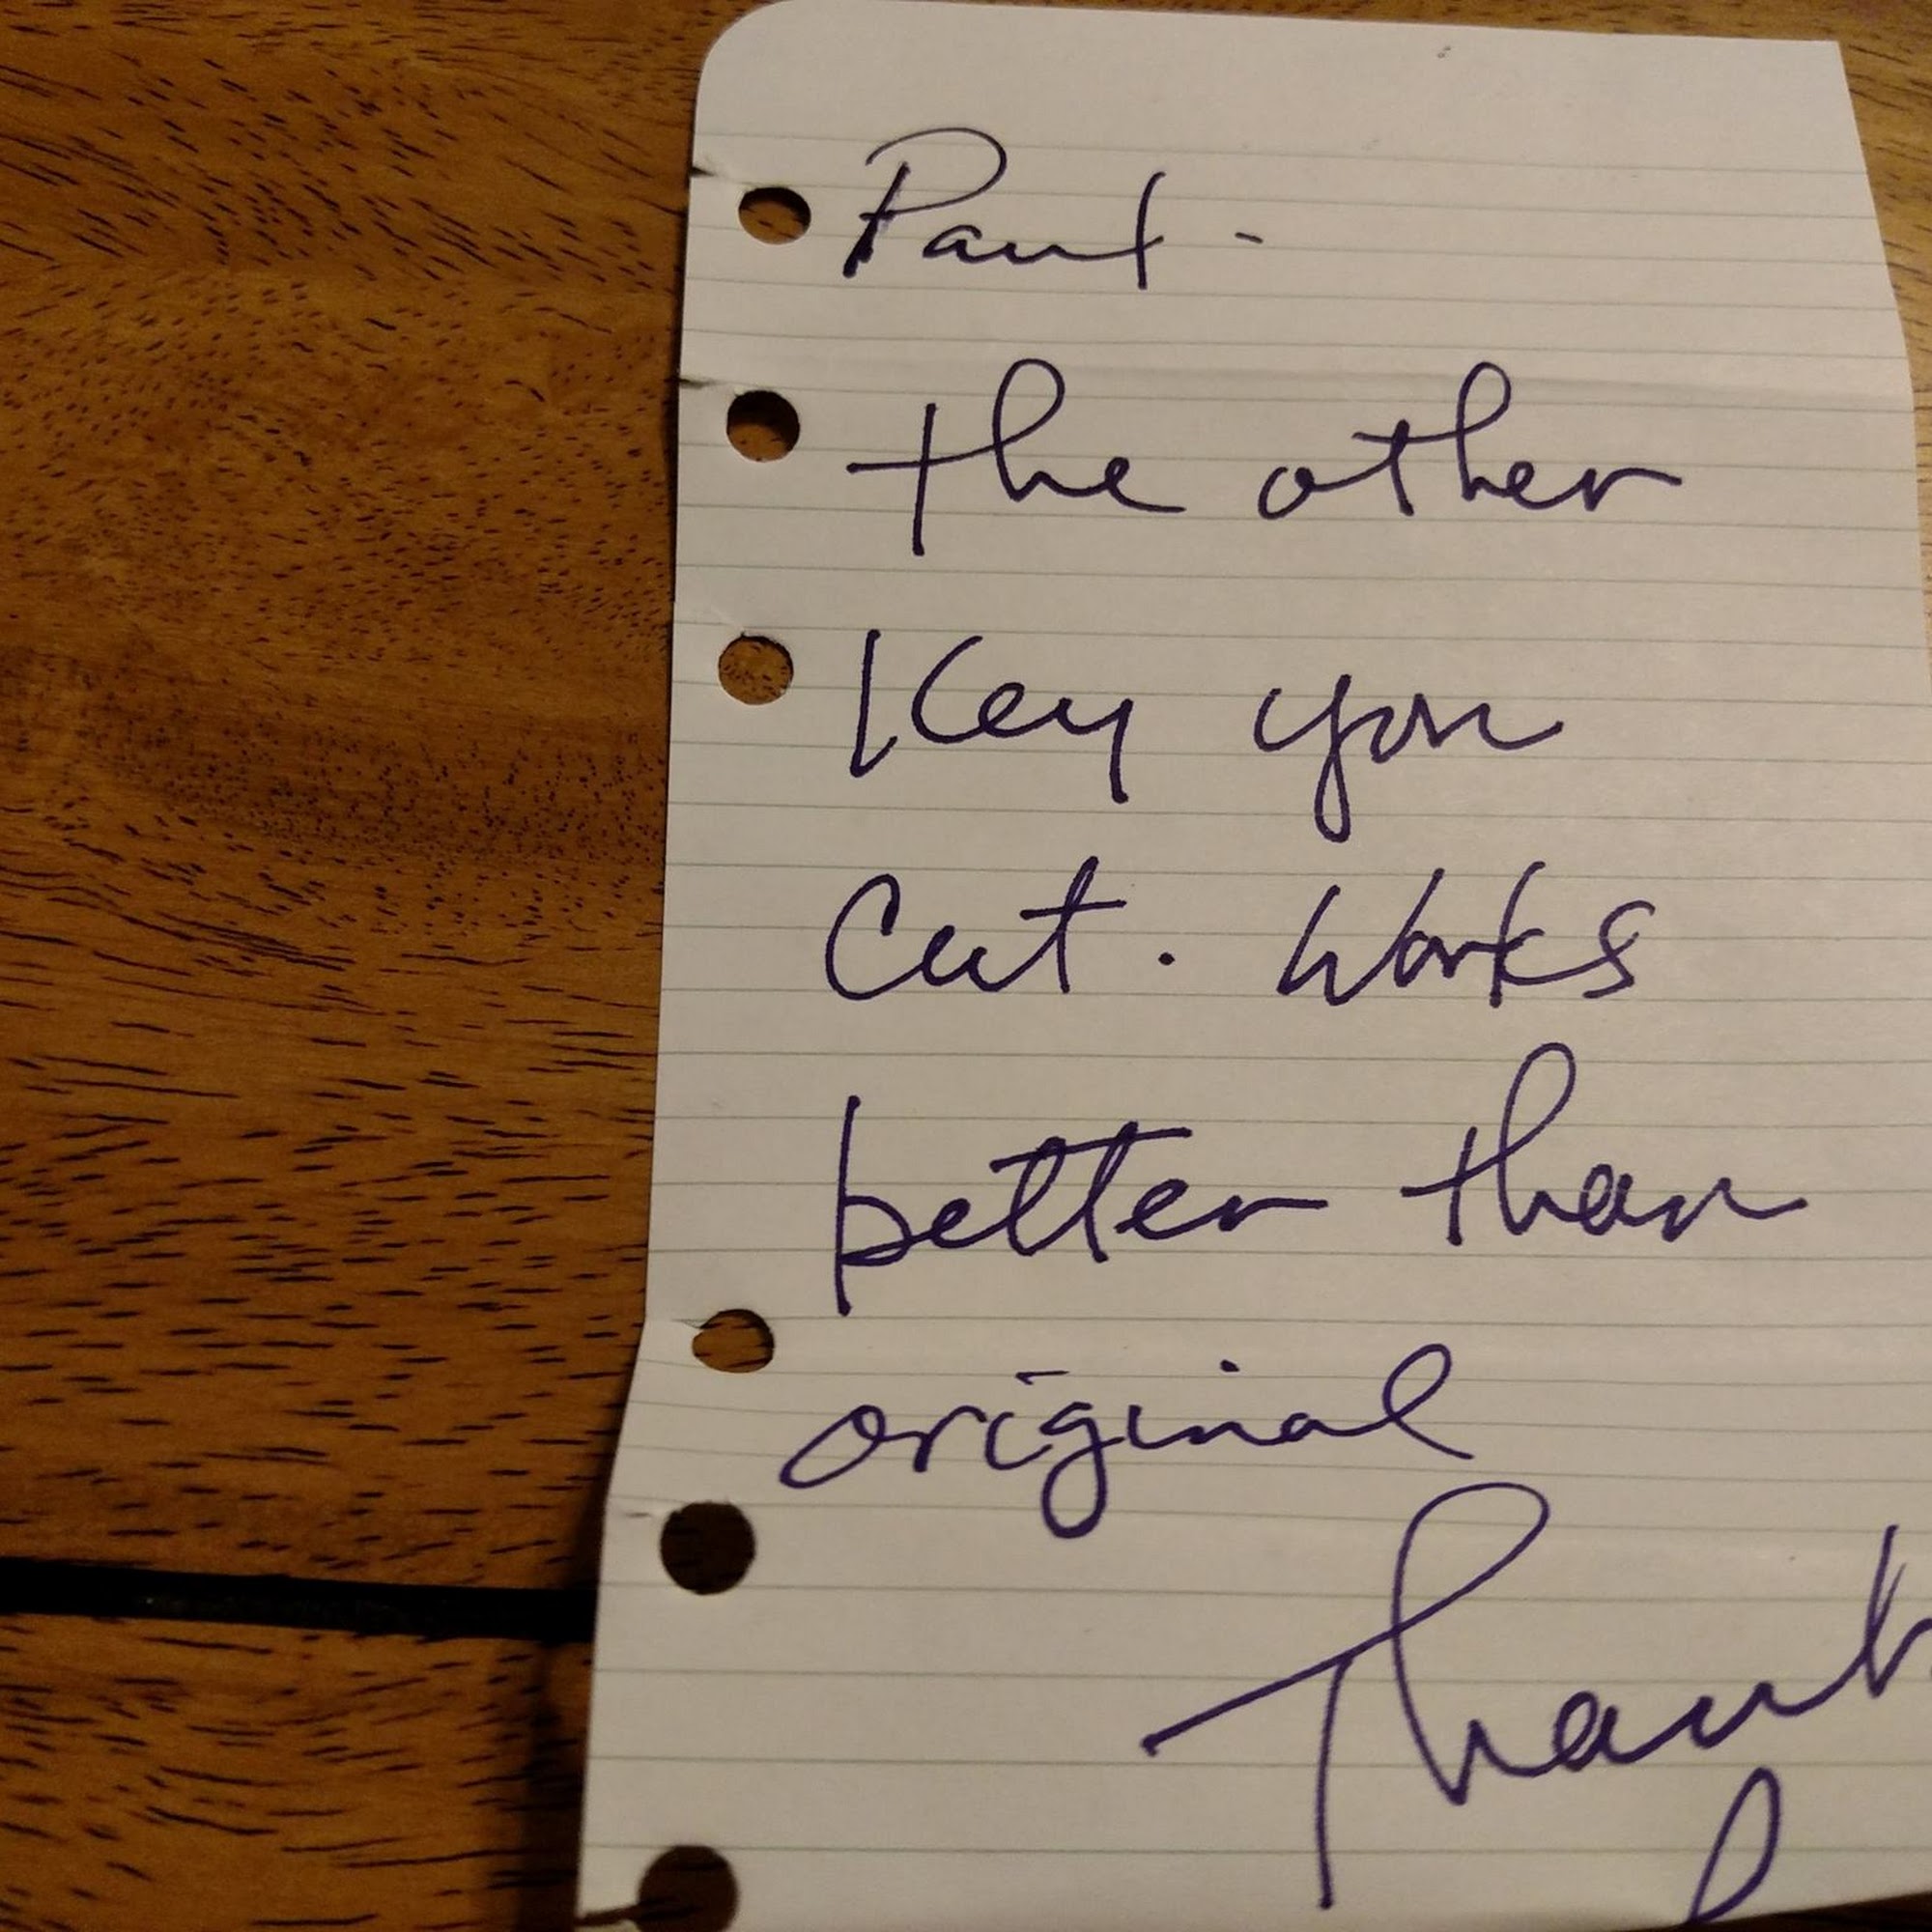 Paul -
the other
Key you
Cut. Works
better than
original
Thank